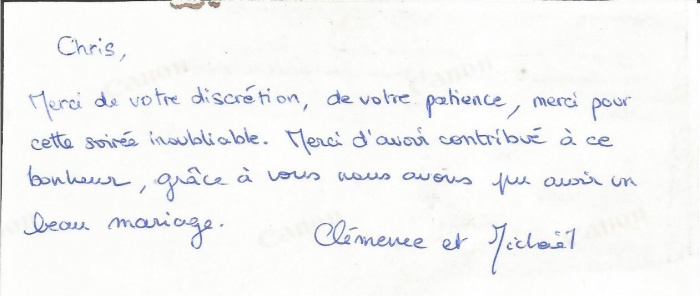 Chris,
Merci de votre discrétion, de votre patience, merci pour
cette soirée inoubliable. Merci d'avoir contribué à ce
bonheur, grâce à vous nous avons pu avoir un
beau mariage.
Clémence et Michaël